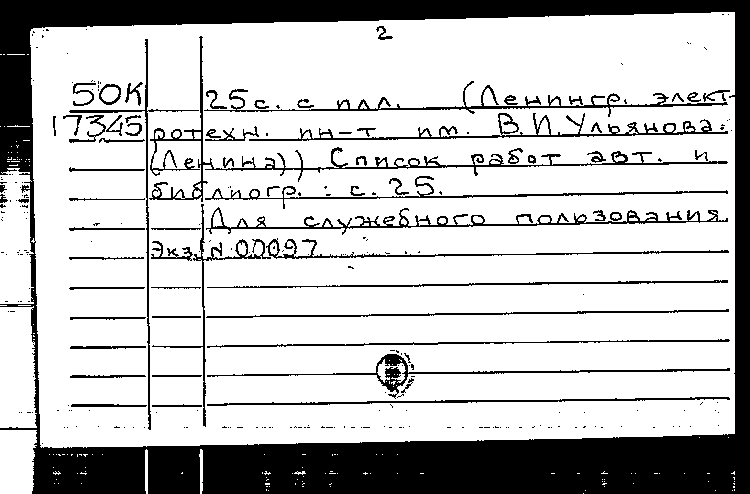 2
50К 25 с. с илл. (Ленингр. элект-
17345 ротехн. ин-т им. В.И. Ульянова.
(Ленина)). Список работ авт. и
библиогр.: с. 25.
Для служебного пользования.
Экз. № 00097